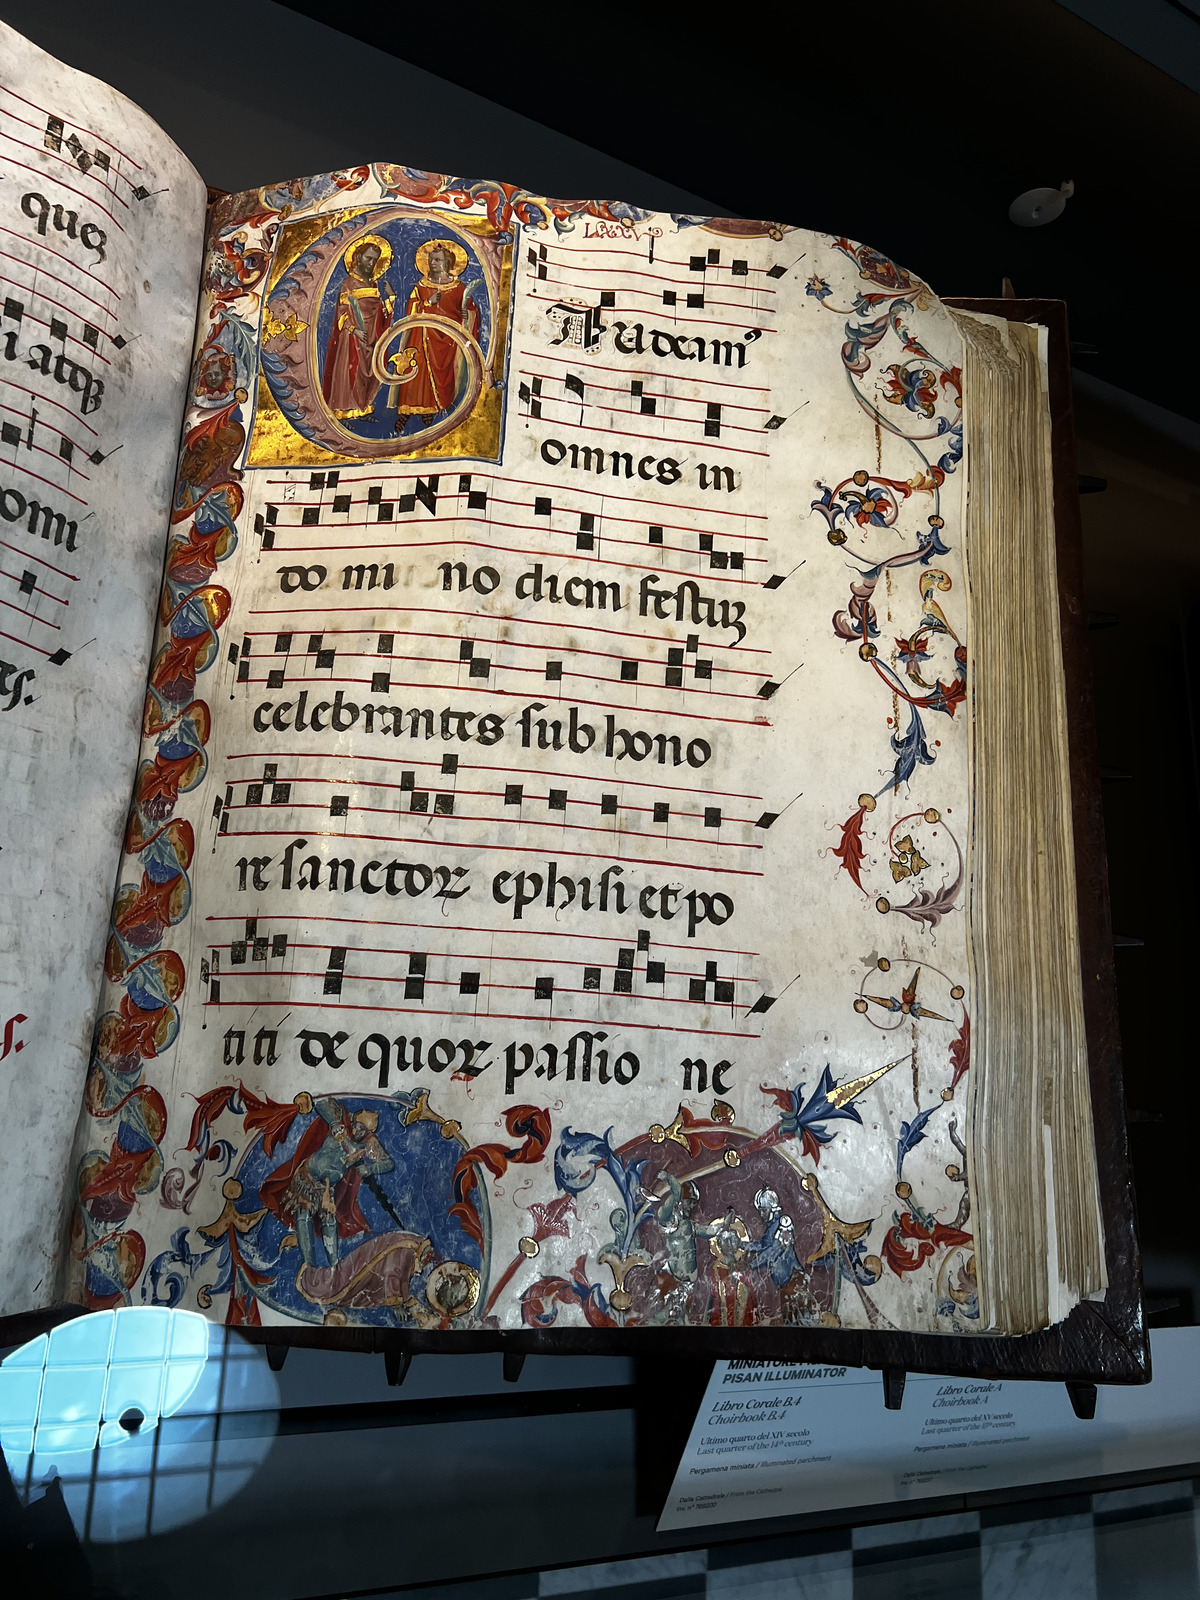 ques
iatqꝫ
omi
es.
s.
LXXXV
Gaudeam⁹
omnes in
do mi no diem festuꝫ
celebrantes sub hono
re sanctoꝝ ephisi et po
titi de quoꝝ passio ne
PISAN ILLUMINATOR
Libro Corale B.4
Choirbook B.4
Ultimo quarto del XIV secolo
Last quarter of the 14th century
Pergamena miniata / Illuminated parchment
Dalla Cattedrale / From the Cathedral
Libro Corale A
Choirbook A
Ultimo quarto del XV secolo
Last quarter of the 15th century
Pergamena miniata / Illuminated parchment
Dalla Cattedrale / From the Cathedral